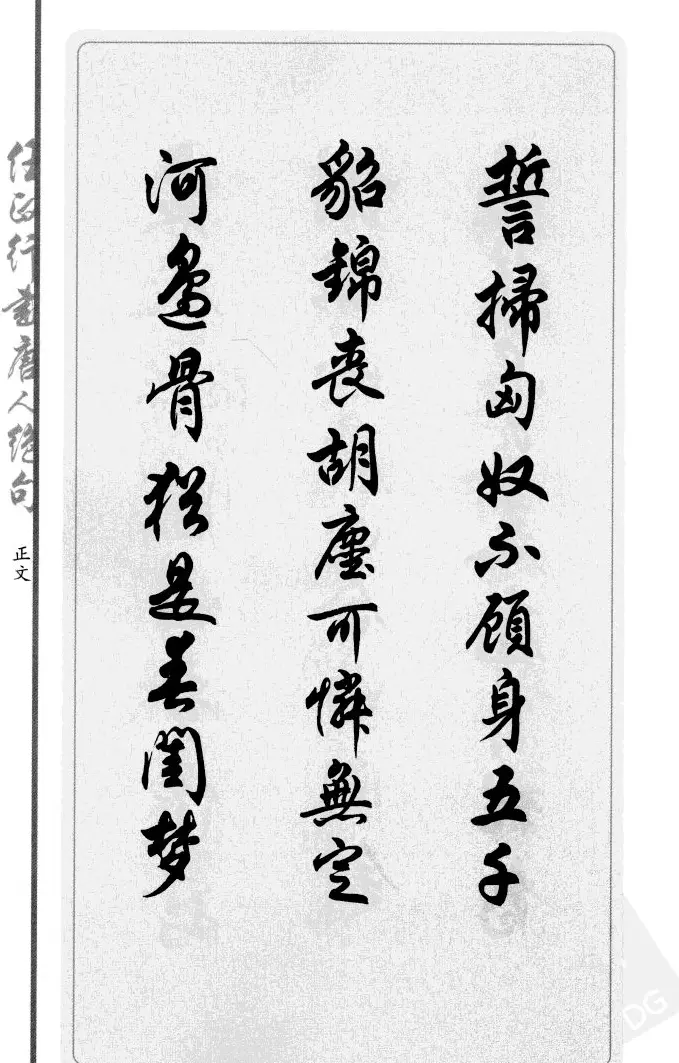 誓掃匈奴不顧身五千
貂錦喪胡塵可憐無定
河邊骨猶是春閨夢
任政行書唐人绝句
正文
DG